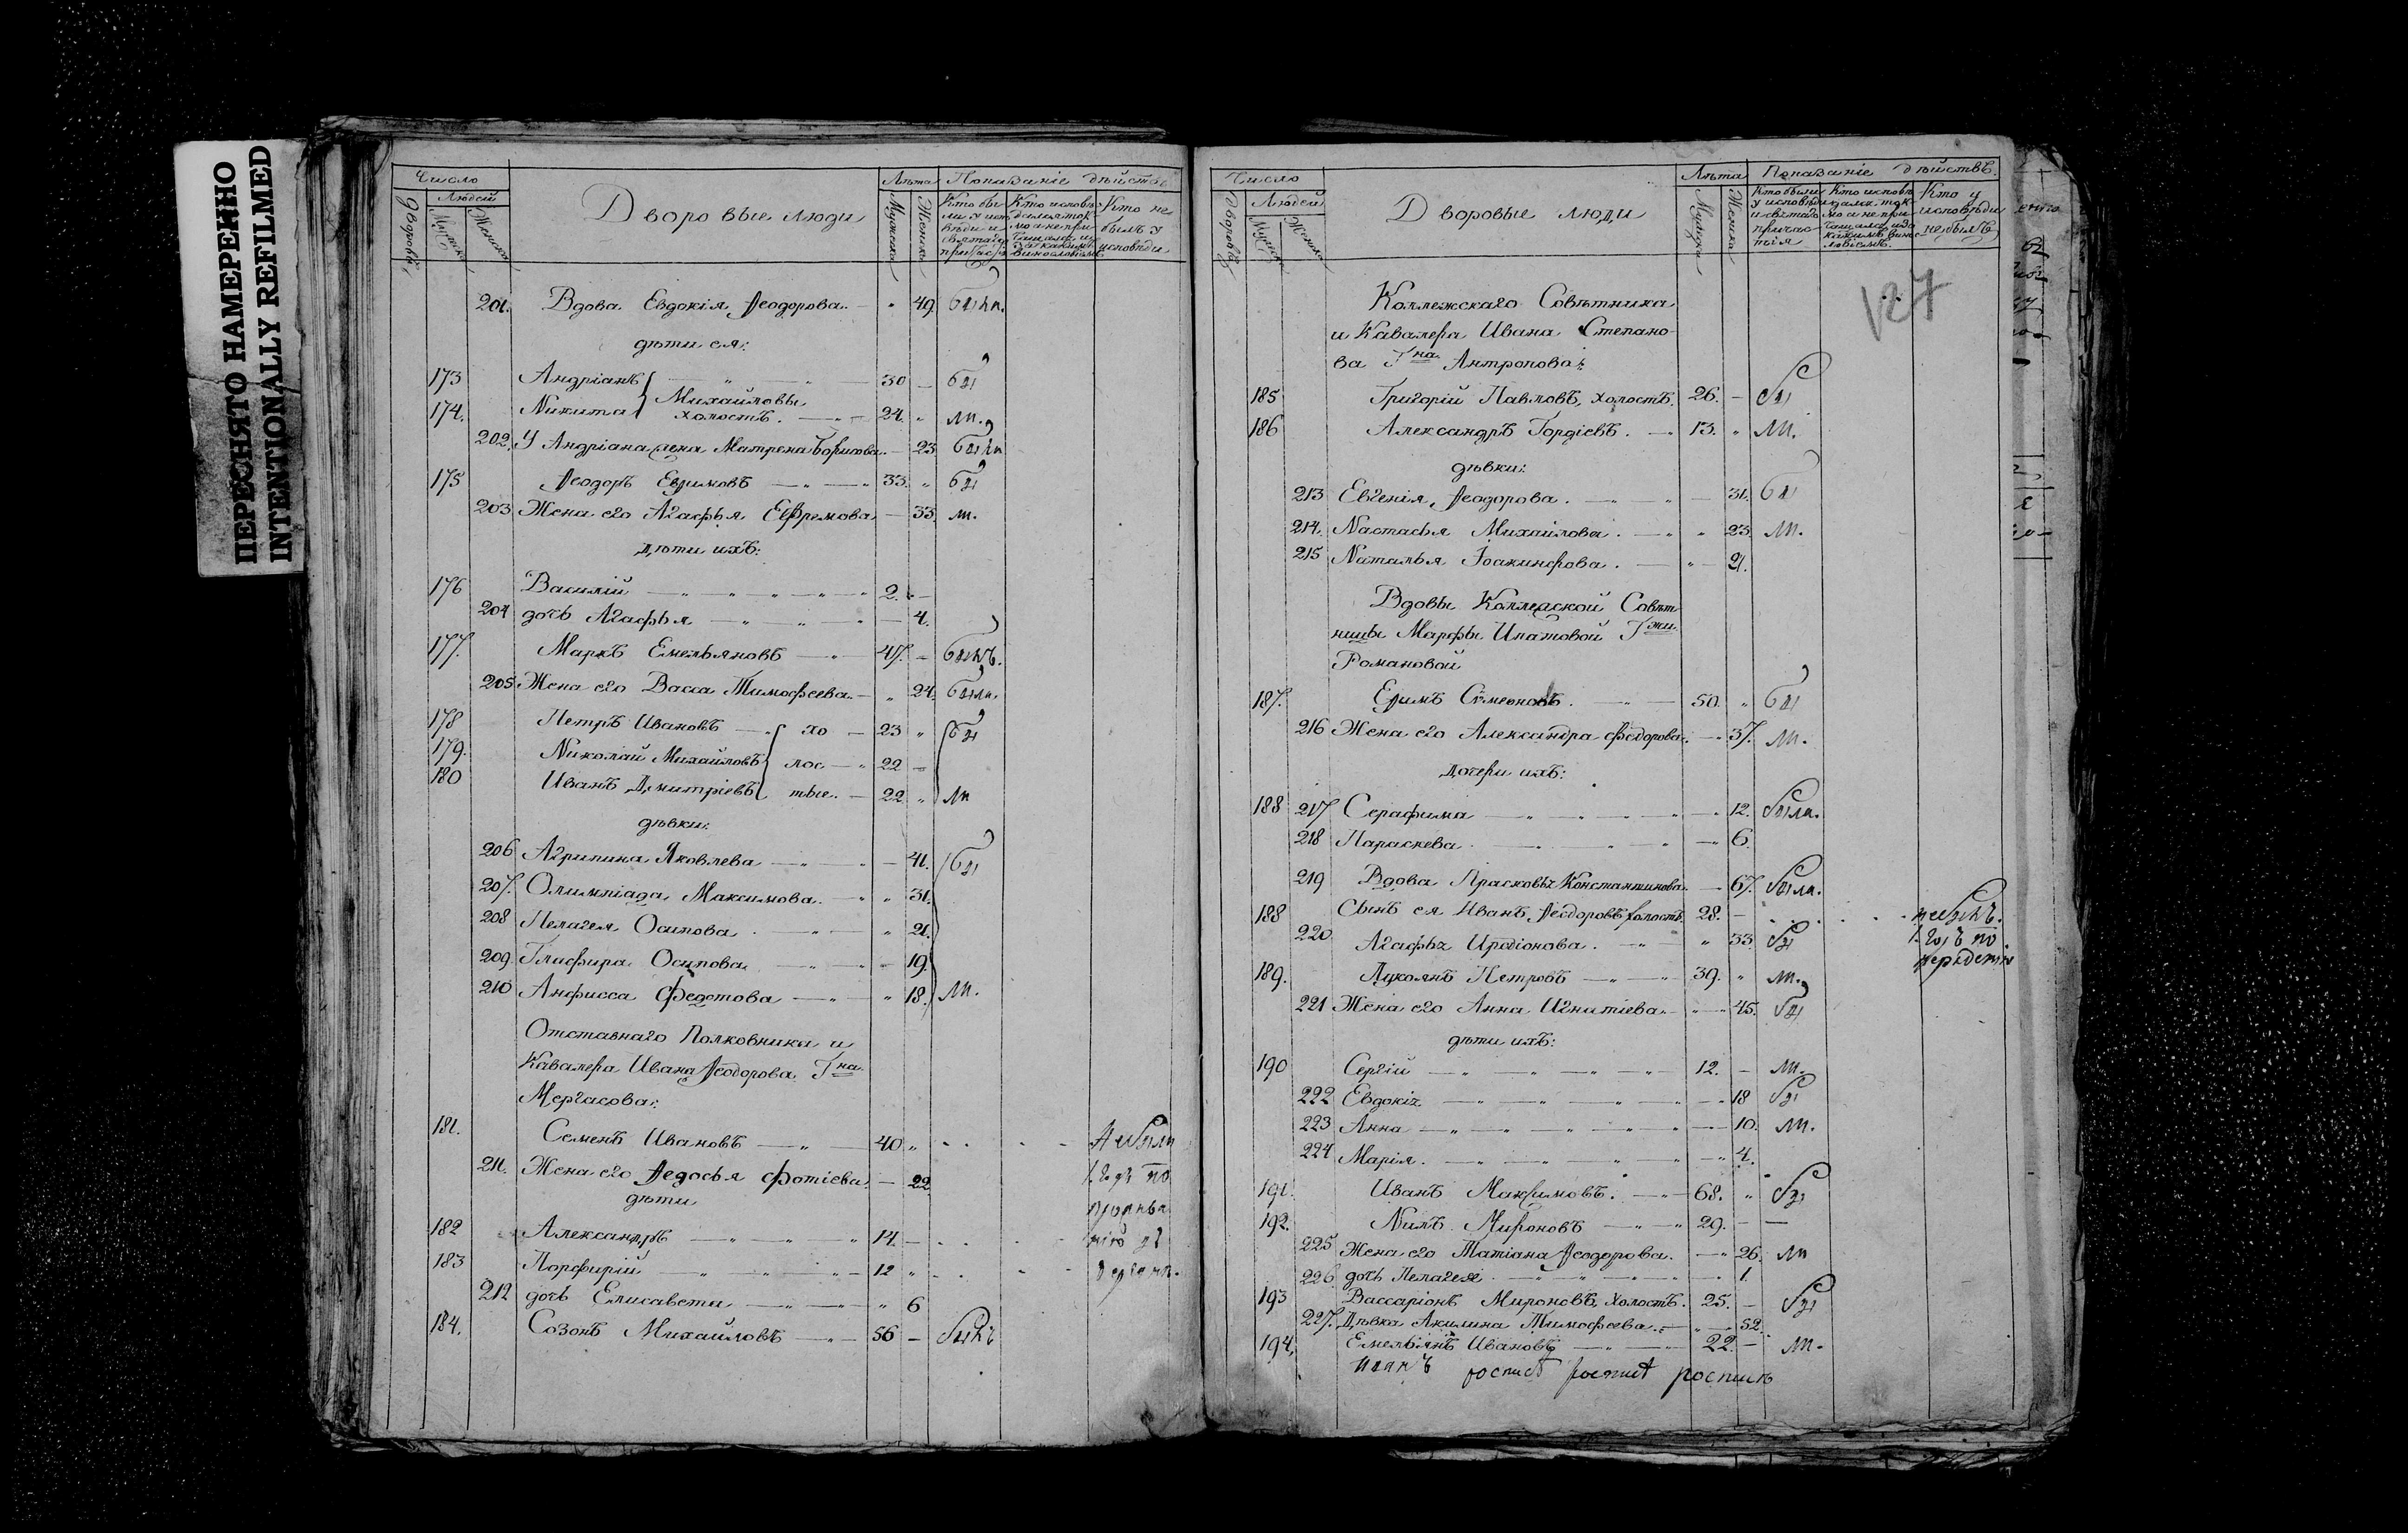 ПЕРЕСНЯТО НАМЕРЕННО
INTENTIONALLY REFILMED
Число Лѣта Показаніе дѣйствъ
Людей
Дворовъ Мужска Женска Дворовые люди Мужеска Женска Кто бы ли у испо вѣди и святаго Кто исповѣ дался ток мо а не при Кто не былъ у исповѣди
201. Вдова Евдокія Ѳеодорова. — " 49. были.
дѣти ея:
173 Андріанъ — " — 30 — бы
Михайловы
174. Никита холостъ. — 24. " ли.
202. У Андріана жена Матрена Борисова. — 23 были
175 Ѳеодоръ Ефимовъ — " — " 33. " бы
203 Жена его Агафья Ефремова — 33. ли.
дѣти ихъ:
176 Василій — " " " " 2. " —
204 дочь Агафья — " " " — 4.
177. Маркъ Емельяновъ — " 47. — былъ.
205 Жена его Васса Тимофеева. — " 24. была.
178 Петръ Ивановъ — хо — 23 " бы
179. Николай Михайловъ лос — " 22 —
180 Иванъ Димитріевъ тые. — 22 " ли
дѣвки:
206 Агрипина Яковлева — " " — 41. бы
207. Олимпіада Максимова. — " " 31.
208 Пелагея Осипова . — " " 21.
209. Глифира Осипова — " " — 19.
210 Анфисса Федотова — " — " 18. ли.
Отставнаго Полковника и
Кавалера Ивана Ѳеодорова Гна
Мергасова:
181. Семенъ Ивановъ — " — 40 " небыли
211. Жена его Ѳедосья Фотіева. — 22 1. годъ по
дѣти
182 Александръ — " " " 14. —
183 Порфирій — " " " — 12 "
212 дочь Елисавета — " — " 6
184. Созонъ Михайловъ — " — 56 — былъ
Число Лѣта Показаніе дѣйствъ.
Людей
Дворовъ Мужска Женска Дворовые люди Мужеска Женска Кто были у исповѣди и святаго причас тія Кто исповѣ дался ток мо а не при Кто у исповѣди не былъ
127
Коллежскаго Совѣтника
и Кавалера Ивана Степано
ва Гна Антропова:
185 Григорій Павловъ, холостъ. 26. — бы
186 Александръ Гордіевъ. — " 13. " ли.
дѣвки:
213 Евгенія Ѳеодорова. — " " — 31. бы
214. Настасья Михайлова. — " " 23. ли.
215 Наталья Іоакинфова. — " — 21.
Вдовы Коллежской Совѣт
ницы Марфы Ипатовой Гжи
Романовой
187. Ефимъ Семеоновъ. — " — 50. " бы
216 Жена его Александра Федорова. — " 37. ли.
дочери ихъ:
188 217 Серафима — " — " — " — " 12. была.
218 Параскева. — " " " — " 6.
219 Вдова Прасковья Константинова. — 67. была.
188 Сынъ ея Иванъ Ѳеодоровъ холостъ. 28. — небылъ.
220 Агафья Иродіонова. — " — " 33. бы 1. годъ по
189. Лукоянъ Петровъ — " — 39. " ли.
221 Жена его Анна Игнатіева. — " — " 45. бы
дѣти ихъ:
190 Сергій — " — " — " — " 12. — ли.
222 Евдокія — " — " — " — " — " 18 бы
223 Анна — " — " — " — " — " 10. ли.
224 Марія. — " — " — " — " — " 4.
191. Иванъ Максимовъ. — " — 68. " бы
192. Нилъ Мироновъ — " — " 29. — —
225 Жена его Татіана Ѳеодорова. — " 26. ли
226 дочь Пелагея. — " — " — " — " 1.
193 Вассаріонъ Мироновъ, холостъ. 25. — бы
227. Дѣвка Акилина Тимофеева. — " — 52.
194, Емельянъ Ивановъ — " — 22. — ли.